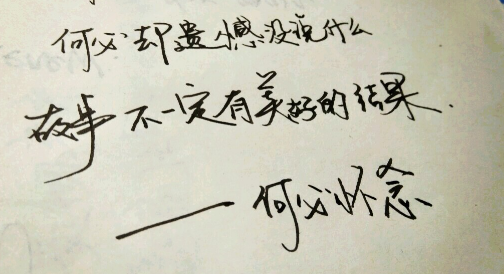 何必却遗憾没说什么
故事不一定有美好的结果.
——何必怀念